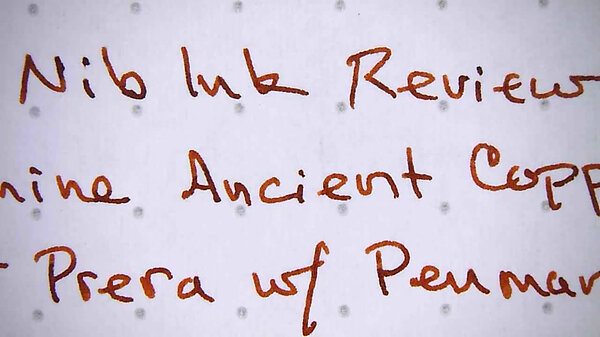 Nib Ink Review
nine Ancient Copp
- Prera w/ Penman